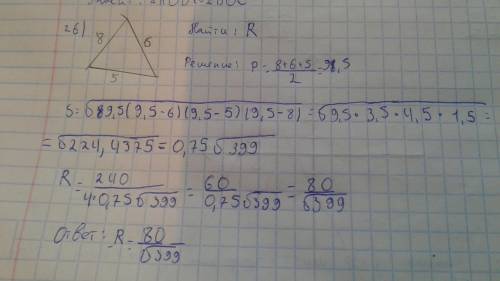 26)
8 6
5
Найти: R
Решение: p = 8+6+5 / 2 = 9,5
S = √9,5(9,5-6)(9,5-5)(9,5-8) = √9,5·3,5·4,5·1,5 =
= √224,4375 = 0,75√399
R = 240 / 4·0,75√399 = 60 / 0,75√399 = 80 / √399
Ответ: R = 80 / √399